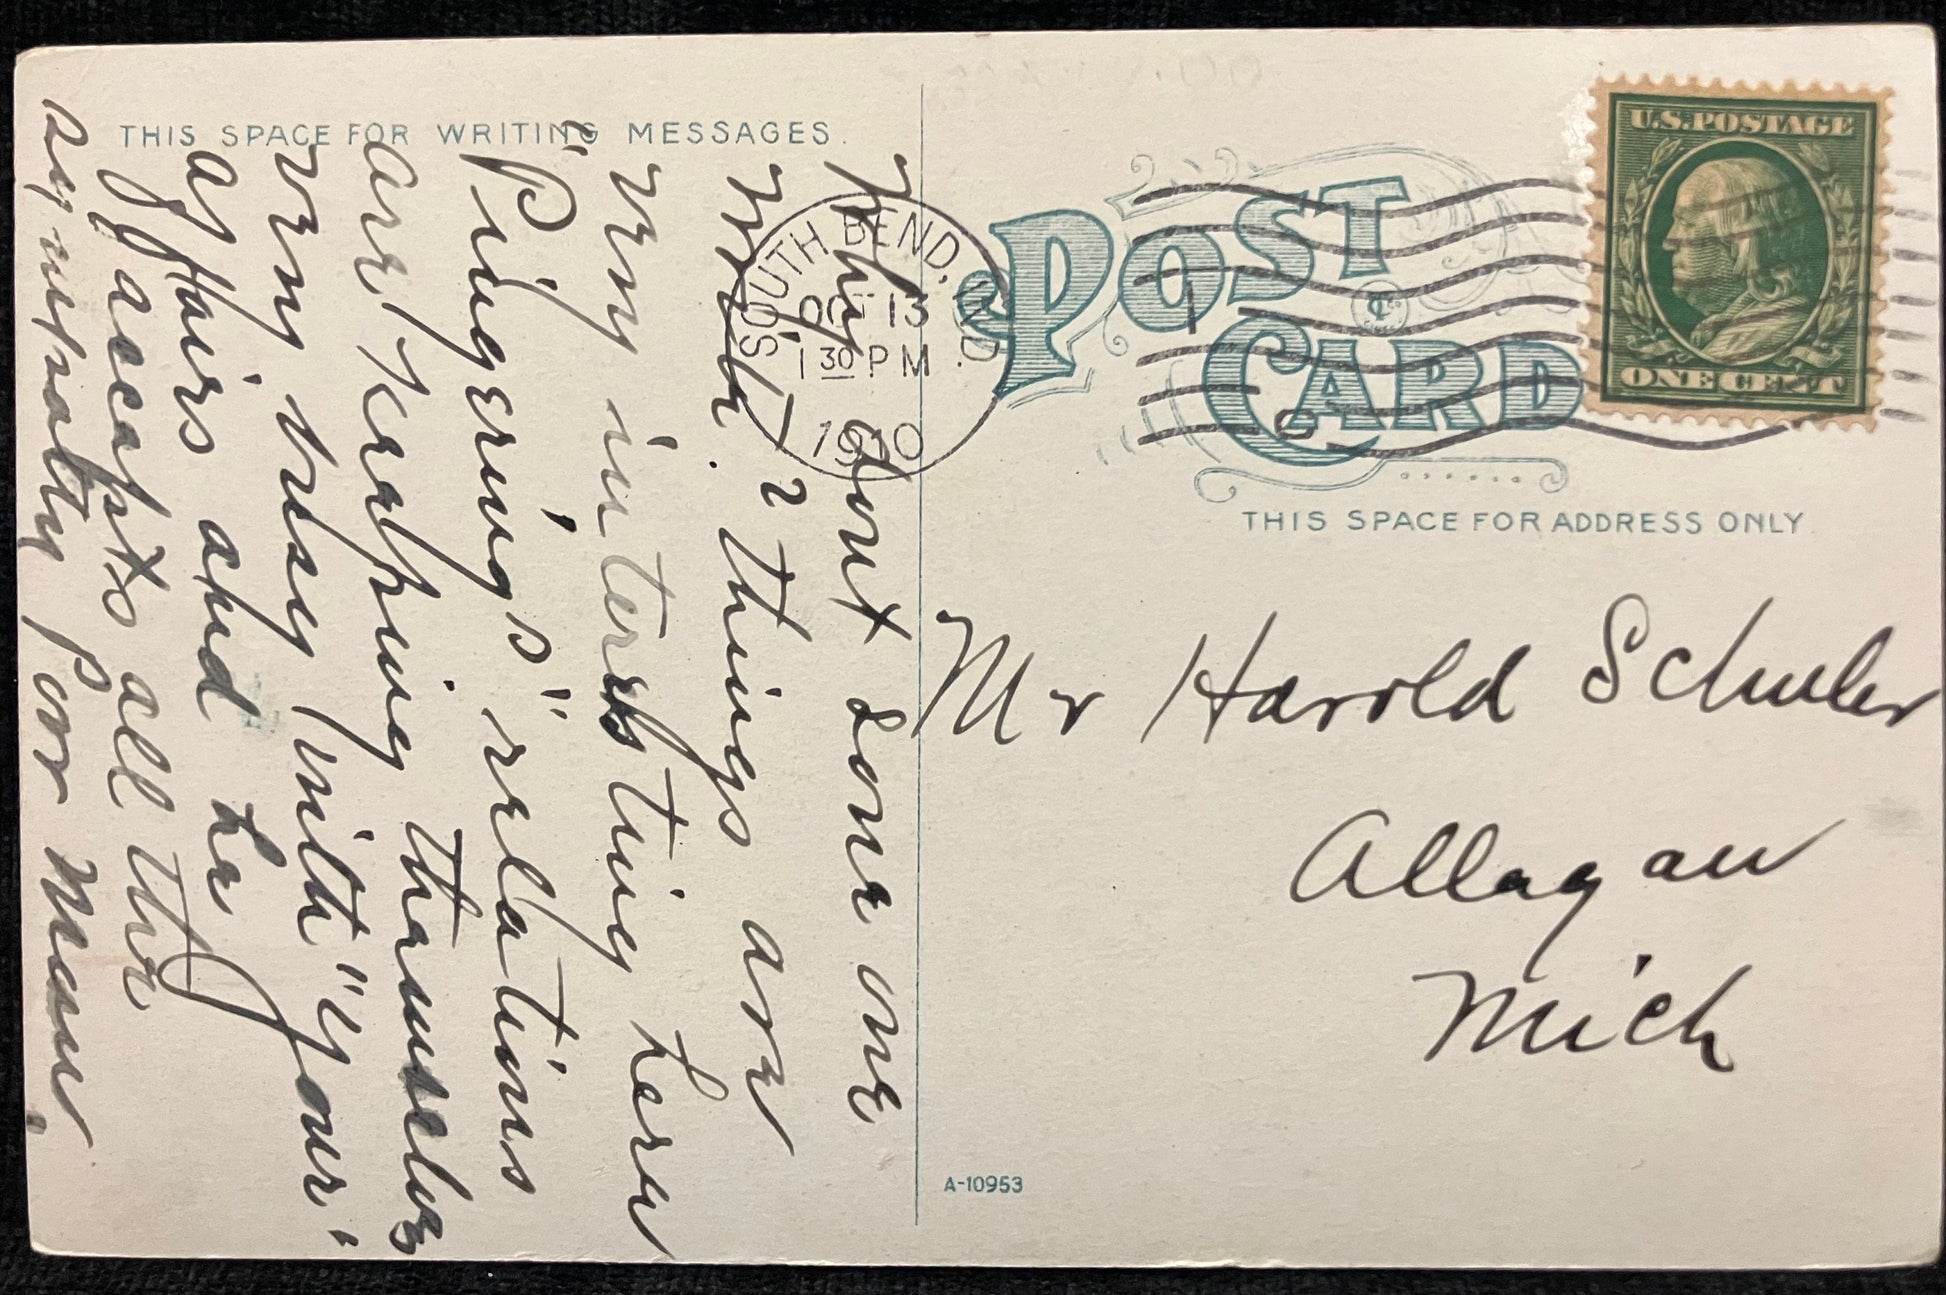 THIS SPACE FOR WRITING MESSAGES.
Why dont some one
write? things are
very interesting here
"Pingering's" relations
are keeping themselves
very busy with "your"
affairs and he
accepts all the
sympathy poor man.
SOUTH BEND, IND.
OCT 13
1 30 PM
1910
1
POST
CARD
U.S. POSTAGE
ONE CENT
THIS SPACE FOR ADDRESS ONLY.
Mr Harold Schuler
Allagan
Mich
A-10953